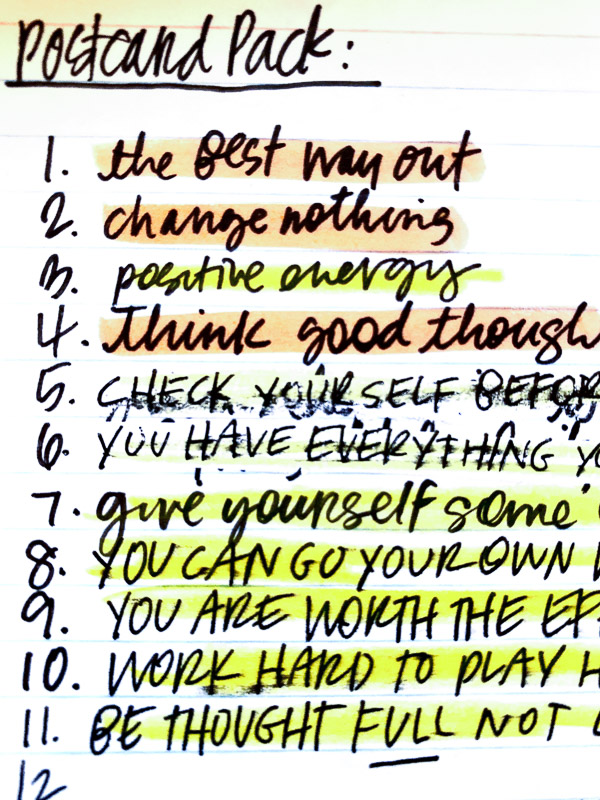 Postcard Pack:
1. the Best way out
2. change nothing
3. positive energy
4. Think good though
5. CHECK YOURSELF BEFOR
6. YOU HAVE EVERYTHING YO
7. give yourself some
8. YOU CAN GO YOUR OWN
9. YOU ARE WORTH THE EFF
10. WORK HARD TO PLAY H
11. BE THOUGHT FULL NOT
12